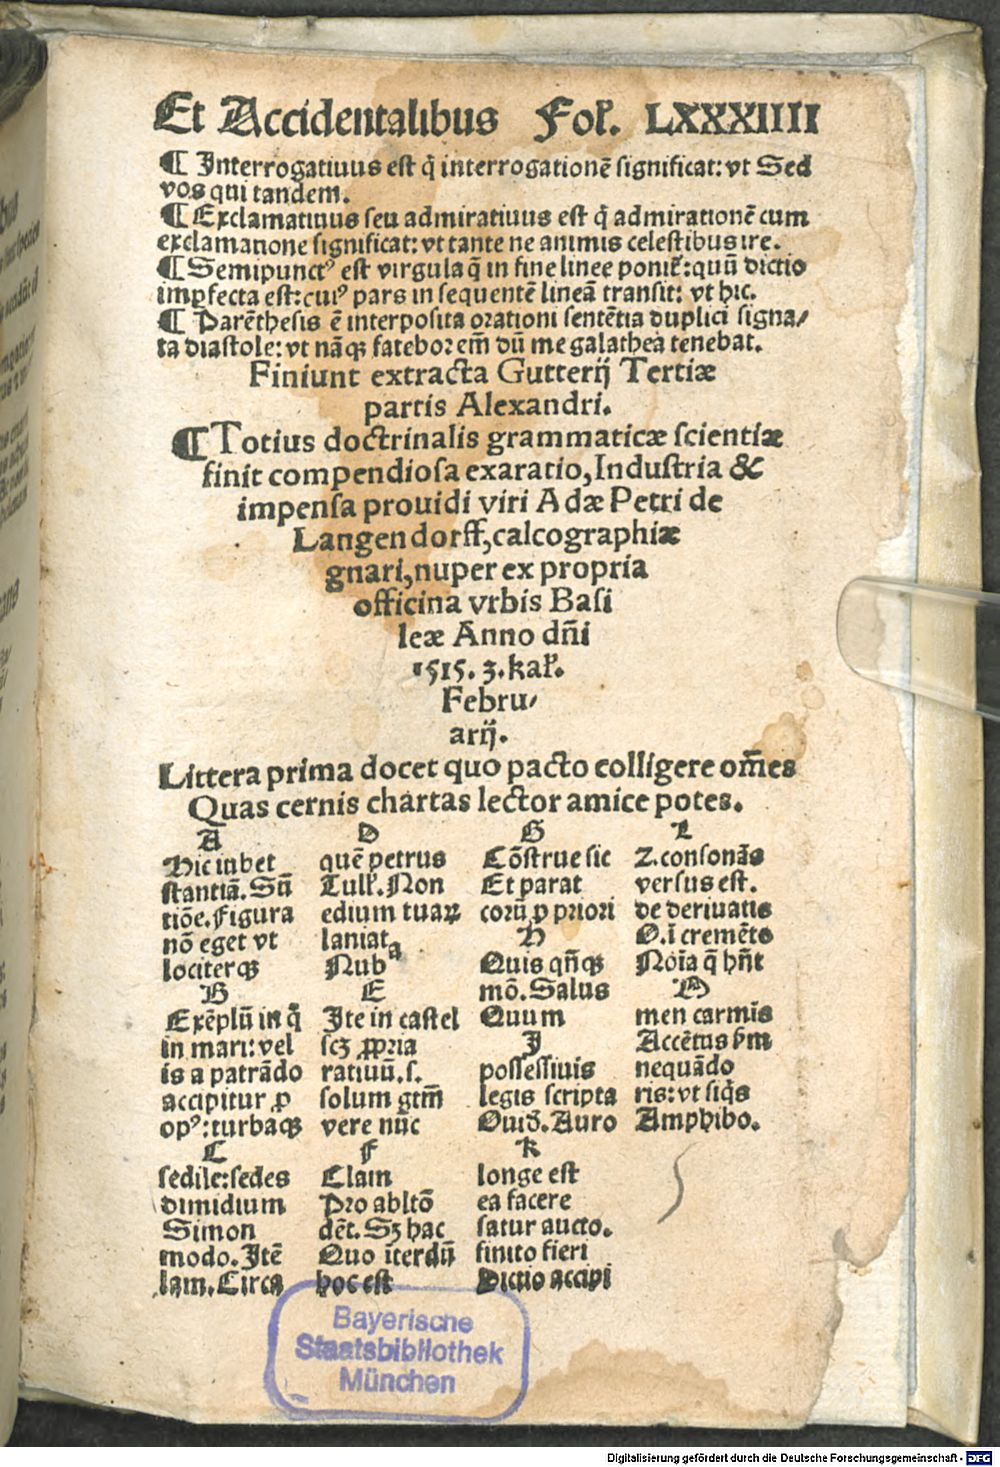 Et Accidentalibus Foł. LXXXIIII
¶ Interrogatiuus est q̃ interrogationẽ significat: vt Sed
vos qui tandem.
¶ Exclamatiuus seu admiratiuus est q̃ admirationẽ cum
exclamatione significat: vt tante ne animis celestibus ire.
¶ Semipunctꝰ est virgula q̃ in fine linee poniť: quũ dictio
imꝑfecta est: cuiꝰ pars in sequentẽ lineã transit: vt hic.
¶ Parẽthesis ẽ interposita orationi sentẽtia duplici signa/
ta diastole: vt nãqꝫ fatebor em̃ dũ me galathea tenebat.
Finiunt extracta Gutterij Tertiæ
partis Alexandri.
¶ Totius doctrinalis grammaticæ scientiæ
finit compendiosa exaratio, Industria &
impensa prouidi viri Adæ Petri de
Langendorff, calcographiæ
gnari, nuper ex propria
officina vrbis Basi
leæ Anno dñi
1515. 3. kał.
Febru/
arij.
Littera prima docet quo pacto colligere om̃es
Quas cernis chartas lector amice potes.
A D G L
Hic iubet quẽ petrus Cõstrue sic Z. consonãs
stantiã. Sũ Tulł. Non Et parat versus est.
tiõe. Figura edium tuaꝝ corũ ꝑ priori de deriuatis
nõ eget vt laniat H O. ĩ cremẽto
lociterqꝫ Nub Quis qñqꝫ Noĩa q̃ hñt
B E mõ. Salus M
Exẽplũ in q̃ Ite in castel Quum men carmĩs
in mari: vel scꝫ ꝓpria I Accẽtus
is a patrãdo ratiuũ. s. possessiuis nequãdo
accipitur ꝓ solum gtm̃ legis scripta ris: vt siq̃s
opꝰ: turbaqꝫ vere nũc Ouid. Auro Amphibo.
C F K
sedile: sedes Clam longe est
dimidium Pro abltõ ea facere
Simon dẽt. Sꝫ hac satur aucto.
modo. Itẽ Quo ĩterdũ finito fieri
lam. Circa hoc est Dictio accipi
Bayerische
Staatsbibliothek
München
Digitalisierung gefördert durch die Deutsche Forschungsgemeinschaft - DFG